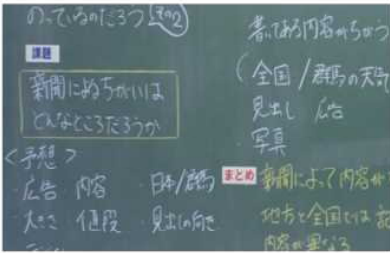 のっているのだろう その2
課題
新聞によるちがいは
どんなところだろうか
<予想>
・広告 内容 ・日本/群馬
・大きさ 値段 ・見出しの向き
書いてある内容がちがう
(全国/群馬の天気
見出し 広告
・写真
まとめ 新聞によって内容が
地方と全国では
内容が異なる